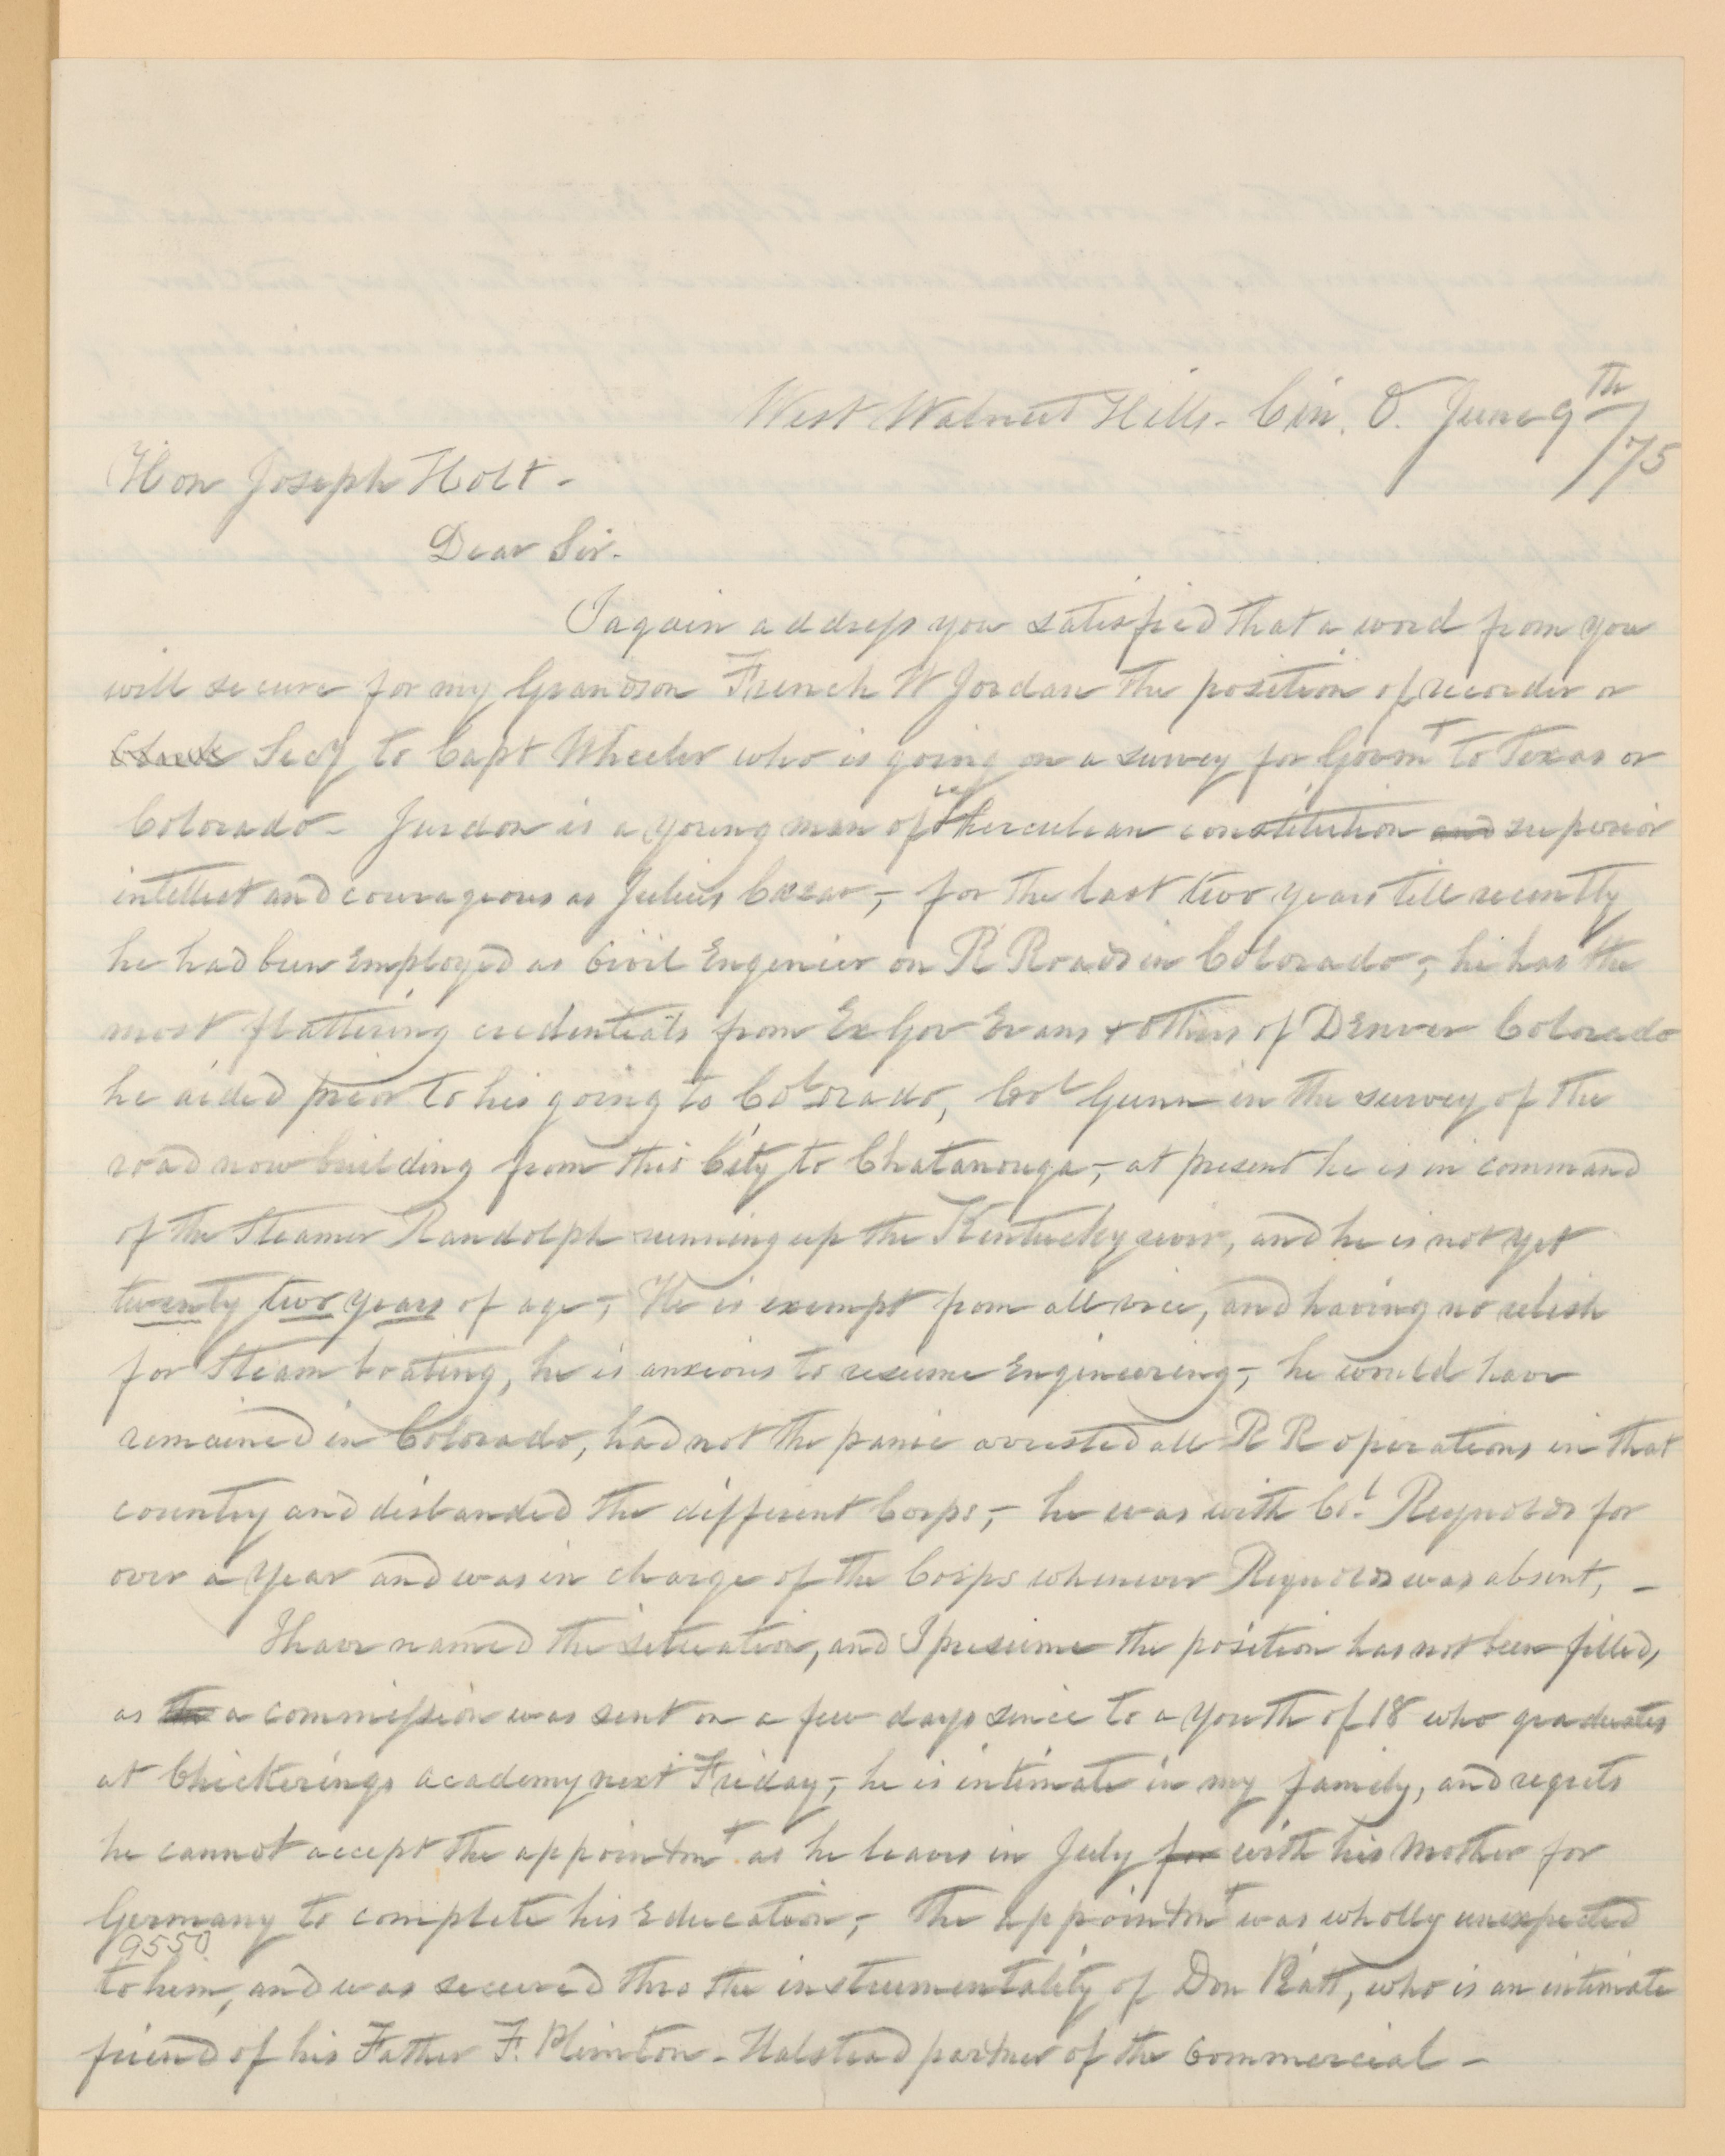 West Walnut Hills - Cin. O. June 9th/75
Hon Joseph Holt -
Dear Sir.
I again address you satisfied that a word from you
will secure for my Grandson French W Jordan the position of recorder or
Clerk Secy to Capt Wheeler who is going on a survey for Govmt to Texas or
Colorado - Jordon is a young man of herculean constitution and superior
intellect and courageous as Julius Cæzar, - for the last two years till recently
he had been employed as Civil Enginier on R Roads in Colorado, - he has the
most flattering credentials from Ex Gov Evans + others of Denver Colorado
he aided prior to his going to Colorado, Col Gunn in the survey of the
road now building from this City to Chatanouga, - at present he is in command
of the Steamer Randolph running up the Kentucky river, and he is not yet
twenty two years of age, - He is exempt from all vice, and having no relish
for Steam boating, he is anxious to resume Engineering, - he would have
remained in Colorado, had not the panic arrested all R R operations in that
country and disbanded the different Corps, - he was with Col. Reynolds for
over a year and was in charge of the Corps whenever Reynolds was absent, -
I have named the situation, and I presume the position has not been filled,
as the a commission was sent on a few days since to a youth of 18 who graduates
at Chickerings academy next Friday, - he is intimate in my family, and regrets
he cannot accept the appointmt as he leaves in July for with his Mother for
Germany to complete his Education, - The appointmt was wholly unexpected
9550
to him, and was secured thro the instrumentality of Don Piatt, who is an intimate
friend of his Father F. Plimton - Halstead partner of the Commercial -